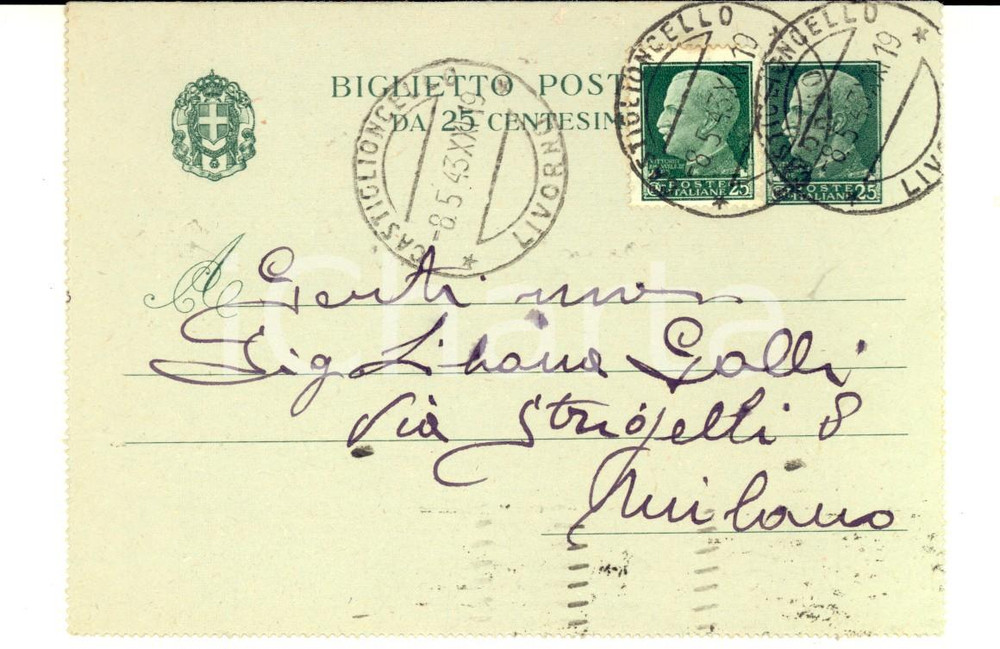 BIGLIETTO POST
DA 25 CENTESIM
CASTIGLIONCELLO
-8.5.43.XXI 19
LIVORNO
CASTIGLIONCELLO
-8.5.43
19
CASTIGLIONCELLO
-8.5.43
19
LIVOR
POSTE
ITALIANE
25
POSTE
ITALIANE
25
A
Gent.ma
Sig Liliana Galli
Via Strigelli 8
Milano
iCharta